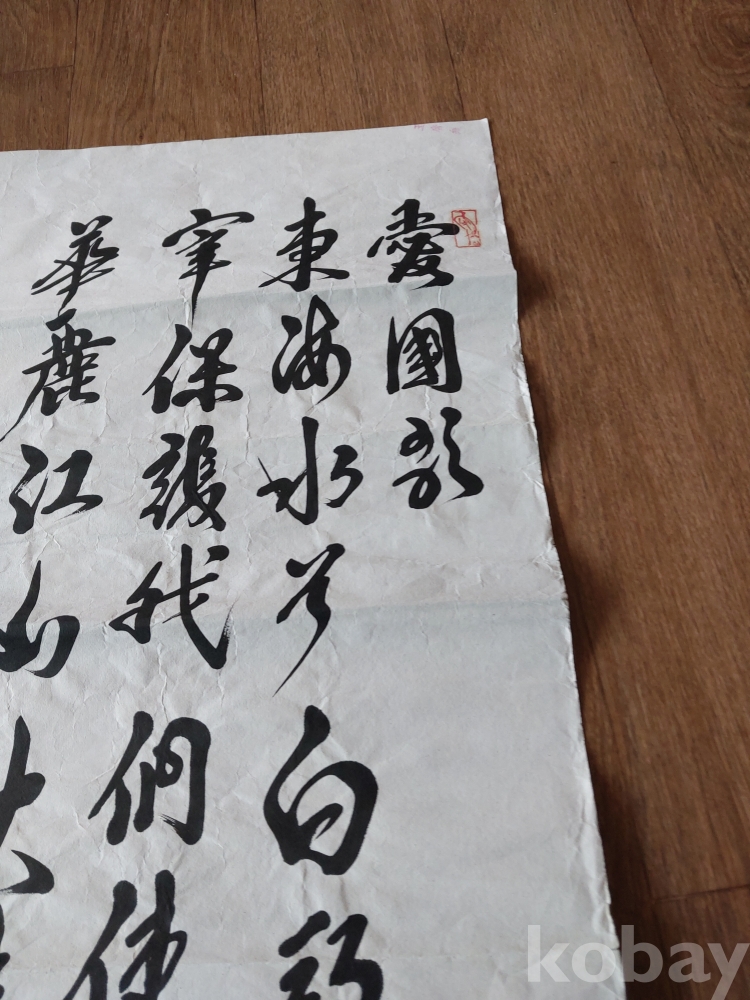 愛國歌
東海水与白頭
宰保護我們使
華麗江山大
kobay